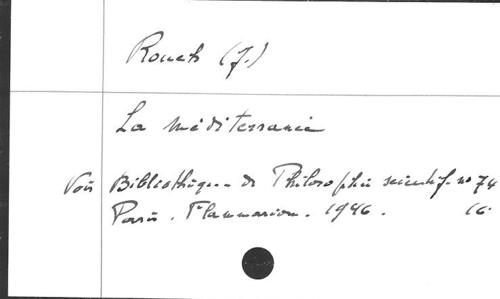 Rouch (J.)
La méditerranée
Voir Bibliothèque de Philosophie scientif. no 74
Paris. Flammarion. 1946. 16.